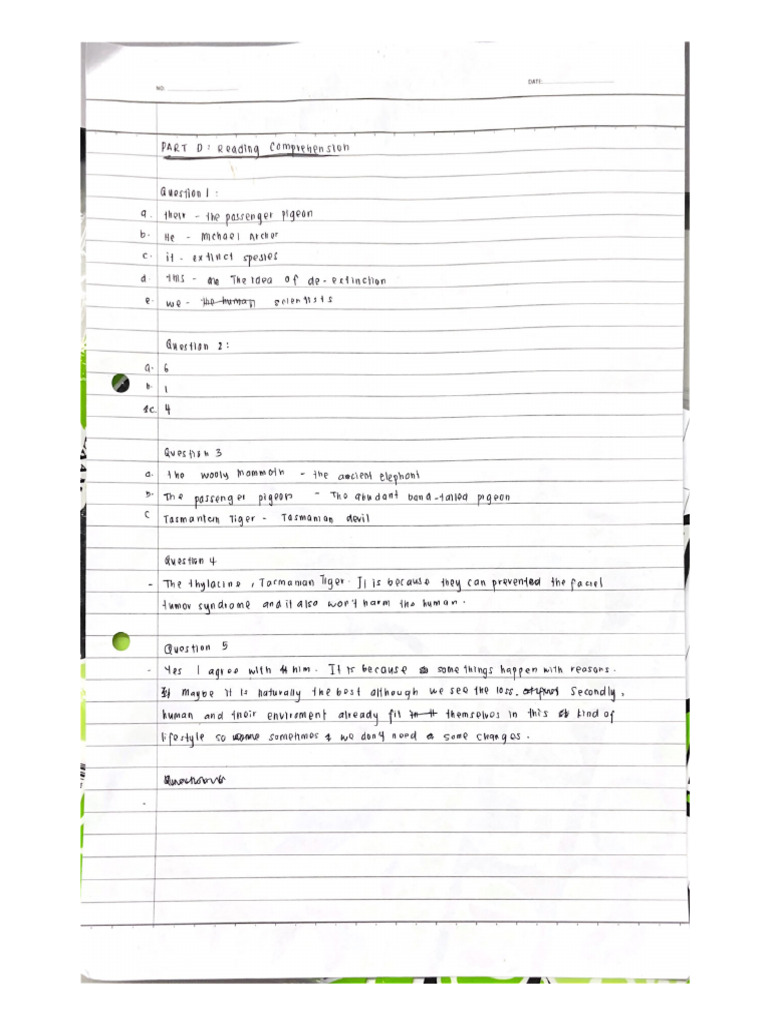 NO:
DATE:
PART D: Reading Comprehension
Question 1:
a. their - the passenger pigeon
b. He - Michael Archer
c. it - extinct spesies
d. this - The idea of de-extinction
e. we - the human scientists
Question 2:
a. 6
b. 1
c. 4
Question 3
a. The wooly mammoth - the ancient elephant
b. The passenger pigeon - The abudant band-tailed pigeon
C Tasmantem Tiger - Tasmanian devil
Question 4
- The thylacine, Tasmanian Tiger. It is because they can prevented the facial
tumor syndrome and it also won't harm the human.
Question 5
- Yes I agree with him. It is because some things happen with reasons.
Maybe it is naturally the best although we see the loss. Secondly,
human and their enviroment already fit themselves in this kind of
lifestyle so sometimes we don't need some changes.